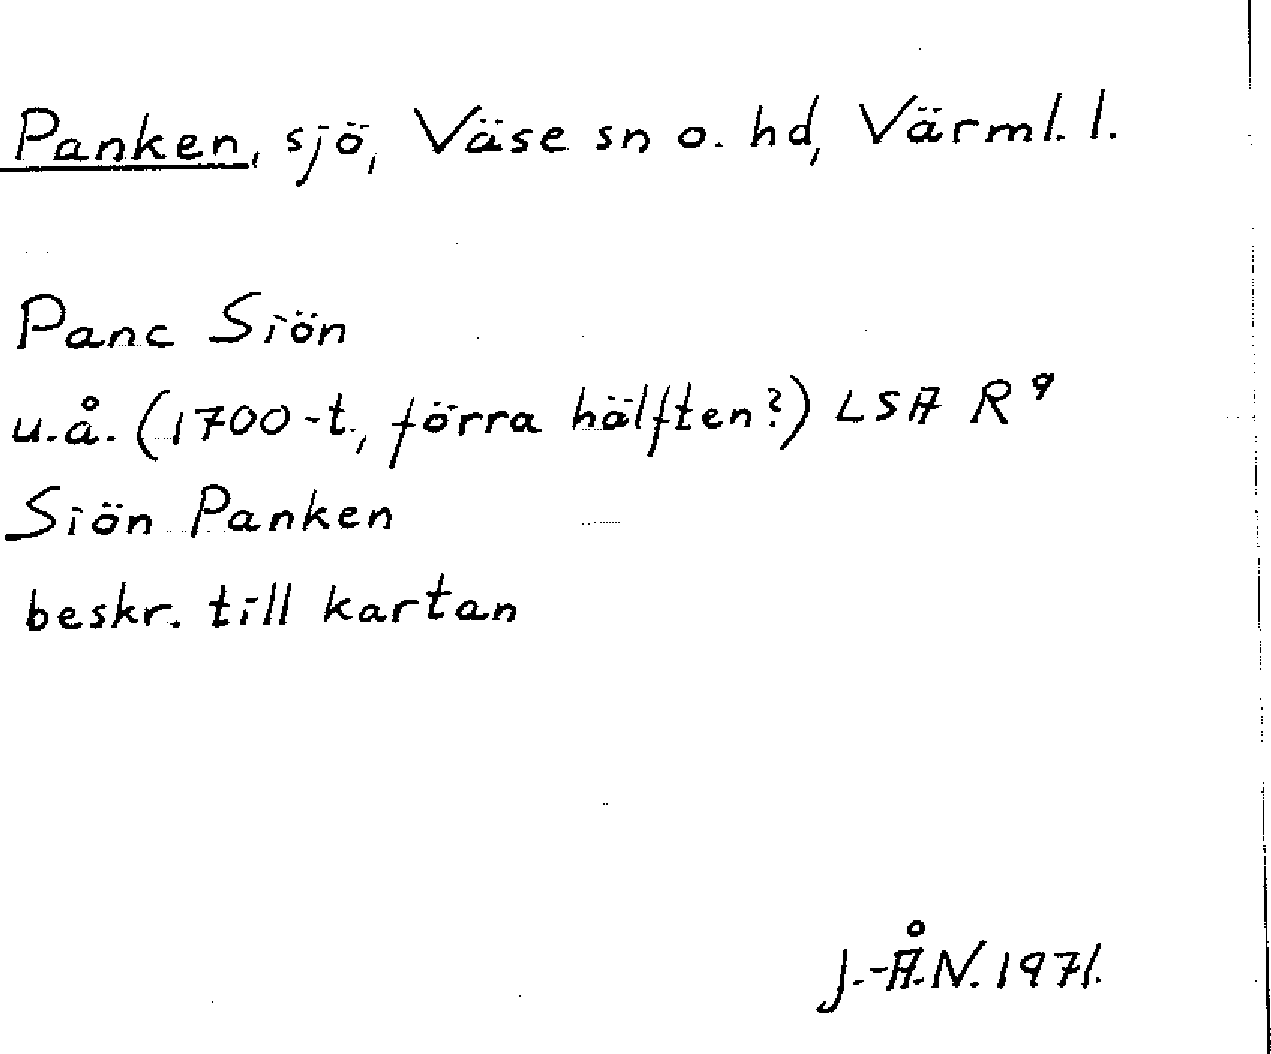 Panken, sjö, Väse sn o. hd, Värml. l.
Panc Siön
u.å. (1700-t., förra hälften?) LSA R⁹
Siön Panken
beskr. till kartan
J.-Å.N. 1971.